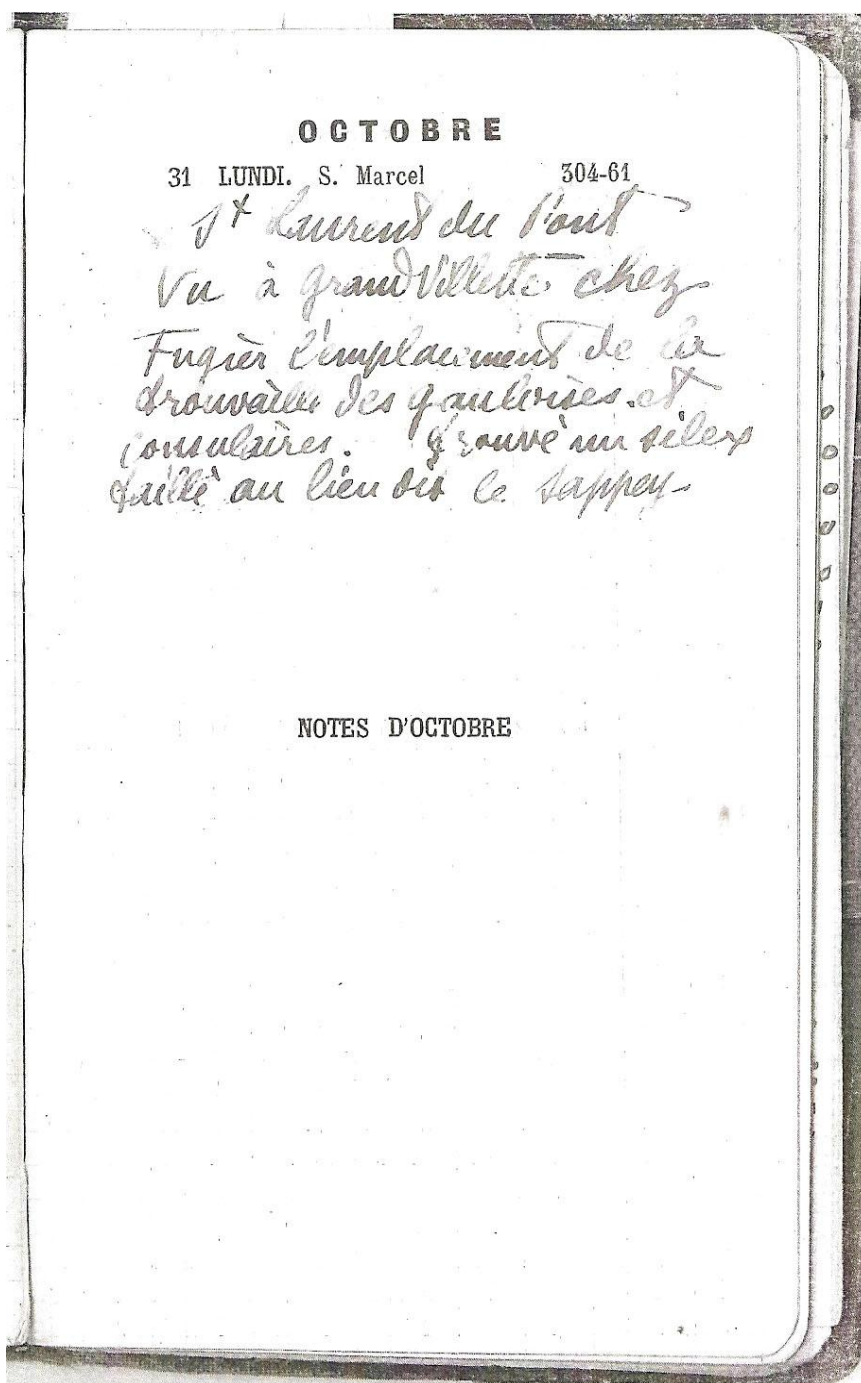 OCTOBRE
31 LUNDI. S. Marcel 304-61
St Laurent du Pont
Vu à Grand Villette chez
Fugier l'emplacement de la
trouvaille des gauloises et
consulaires. Trouvé un silex
taillé au lieu dit le Sappey
NOTES D'OCTOBRE